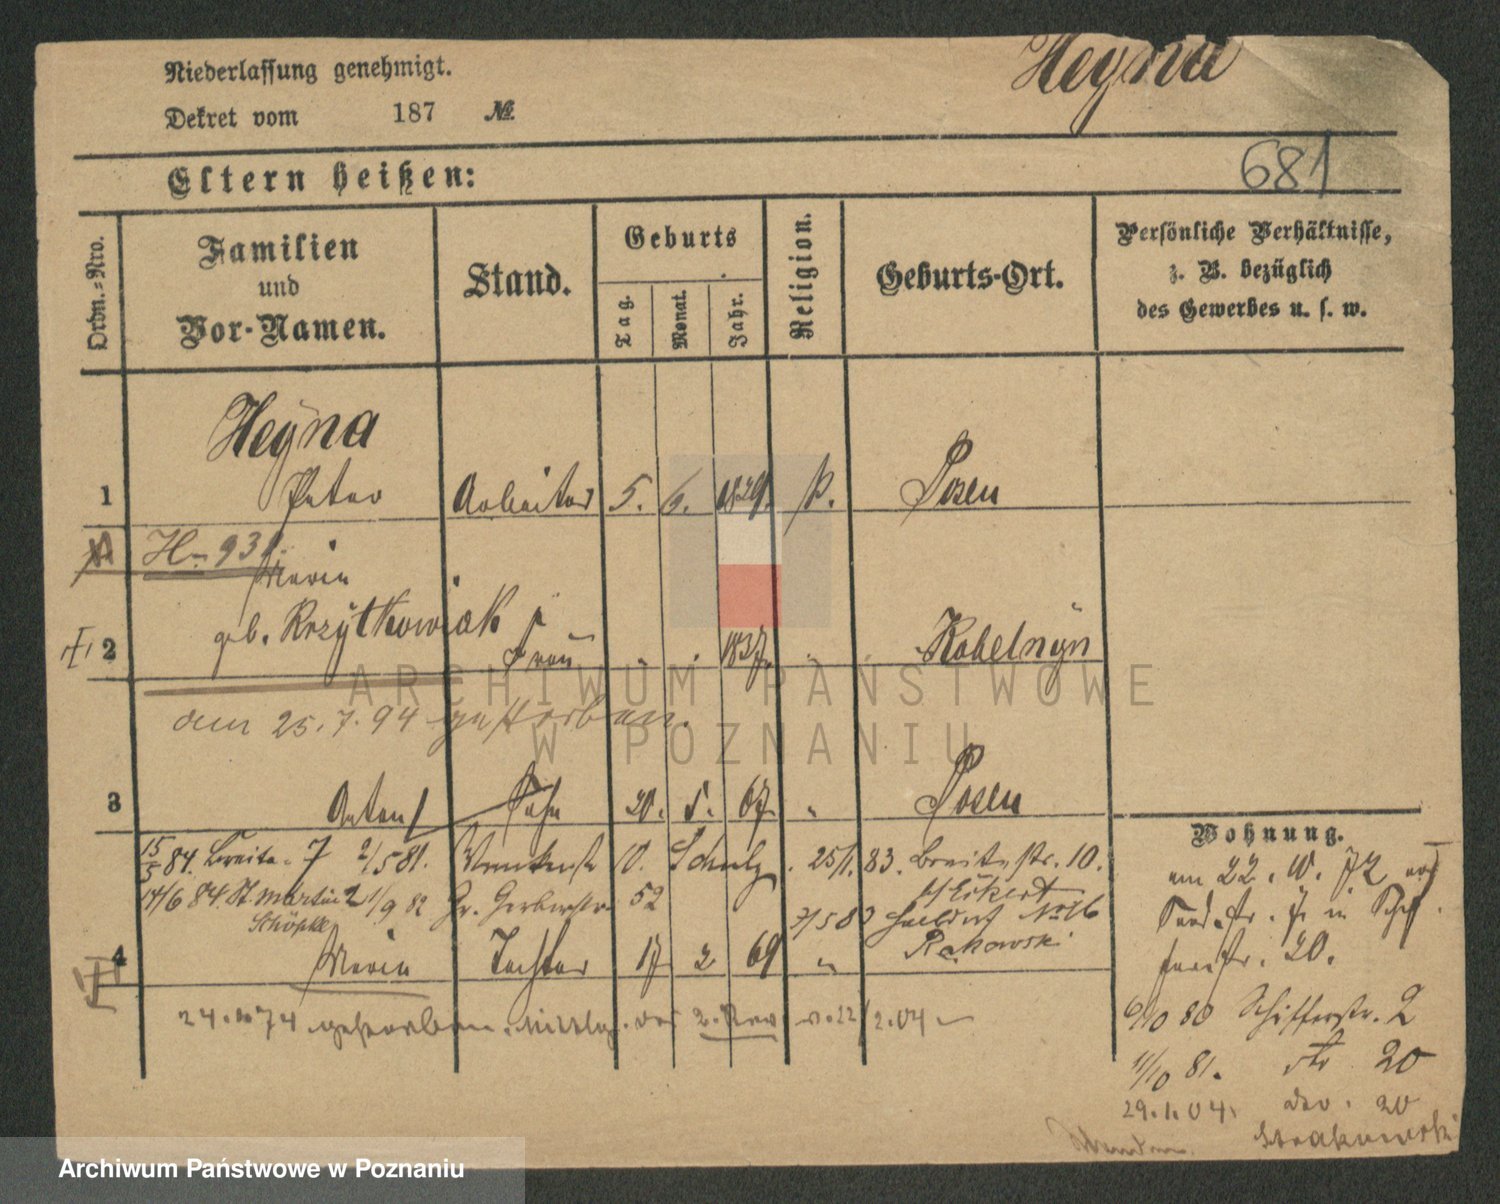 Niederlassung genehmigt.
Heyna
Dekret vom 187 №
681
Eltern heißen:
Ordn.-Nro.
Familien
und
Vor-Namen.
Stand.
Geburts
Tag.
Monat.
Jahr.
Religion.
Geburts-Ort.
Persönliche Verhältnisse,
z. B. bezüglich
des Gewerbes u. s. w.
Heyna
1 Peter Arbeiter 5. 6. 1829. k. Posen
H 939.
Maria
geb. Krzytkowiak
2 Frau 1837. Kobelnyn
ARCHIWUM PAŃSTWOWE
am 25.7.94 gestorben.
W POZNANIU
3 Anton Sohn 20. 5. 67 " Posen
Wohnung.
15/5 84. Breite 7 2/5 81. 10. Schulz 25/1. 83. Breitestr. 10.
am 22. 10. 72
14/6 84 St. Martin 2 1/9 82 Gr. Gerberstr. 52
b/Eckert
No 16
Schöpke
Rakowski
4 Maria Tochter 17 2 69 "
20.
24.10 74 gestorben. 22/2.04
6/10 80 Schifferstr. 2
11/10 81. 20
29.1.04. 20
Strakowski
Archiwum Państwowe w Poznaniu